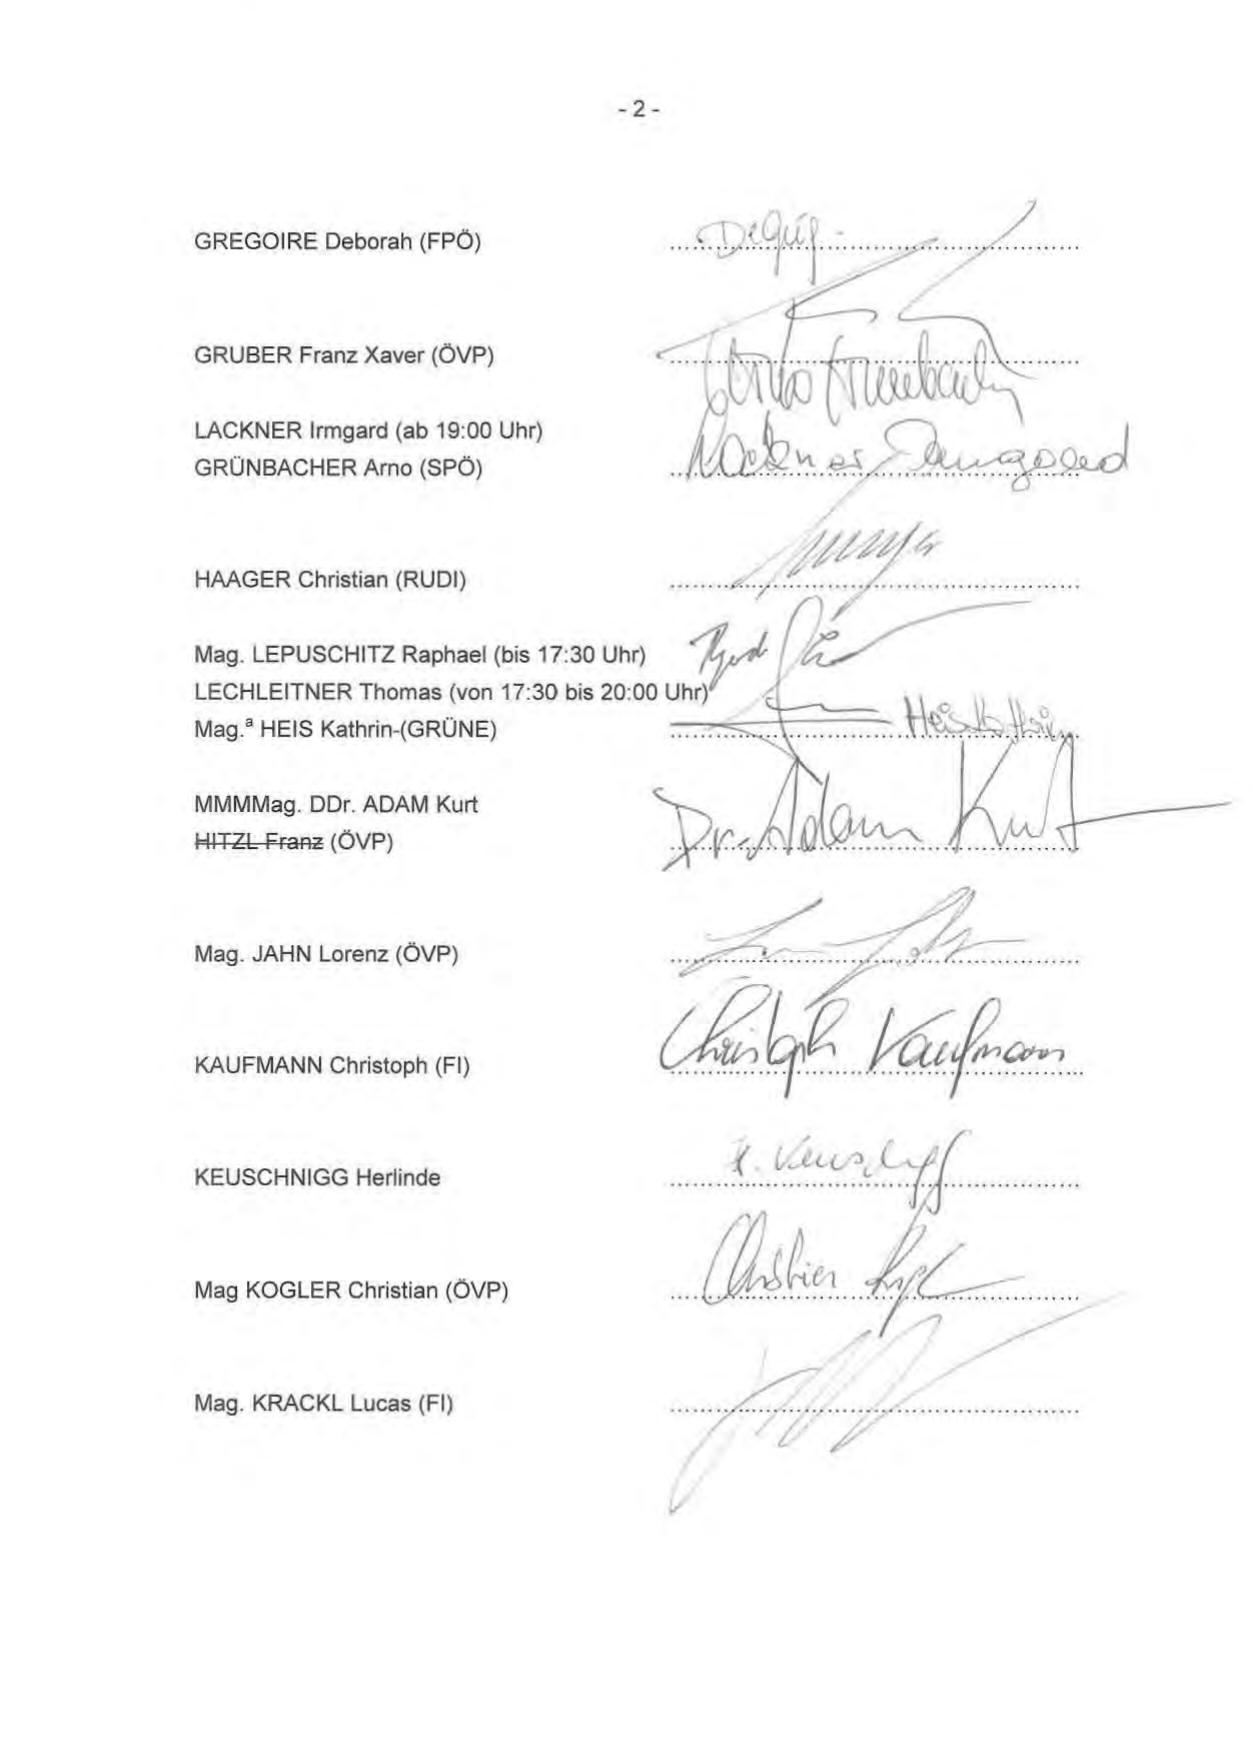 - 2 -
GREGOIRE Deborah (FPÖ)
GRUBER Franz Xaver (ÖVP)
Arno Grünbacher
LACKNER Irmgard (ab 19:00 Uhr)
Lackner Irmgard
GRÜNBACHER Arno (SPÖ)
HAAGER Christian (RUDI)
Mag. LEPUSCHITZ Raphael (bis 17:30 Uhr)
LECHLEITNER Thomas (von 17:30 bis 20:00 Uhr)
Mag.ª HEIS Kathrin-(GRÜNE) Heis Kathrin
MMMMag. DDr. ADAM Kurt
Dr. Adam Kurt
HITZL Franz (ÖVP)
Mag. JAHN Lorenz (ÖVP)
KAUFMANN Christoph (FI) Christoph Kaufmann
KEUSCHNIGG Herlinde H. Keuschnigg
Mag KOGLER Christian (ÖVP) Christian
Mag. KRACKL Lucas (FI)